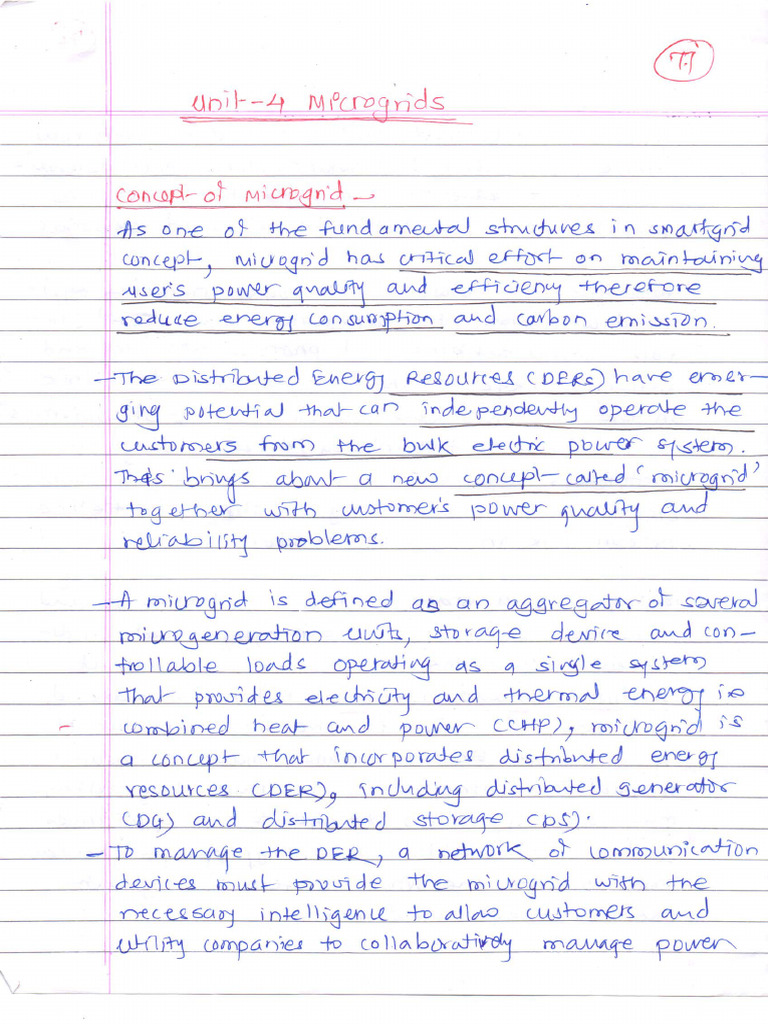 Unit-4 Microgrids
Concept of Microgrid -
As one of the fundamental structures in smartgrid
concept, microgrid has critical effort on maintaining
user's power quality and efficiency therefore
reduce energy consumption and carbon emission.
- The Distributed Energy Resources (DERs) have emer-
ging potential that can independently operate the
customers from the bulk electric power system.
This brings about a new concept called 'microgrid'
together with customer's power quality and
reliability problems.
- A microgrid is defined as an aggregator of several
microgeneration units, storage device and con-
trollable loads operating as a single system
that provides electricity and thermal energy ie
combined heat and power (CHP), microgrid is
a concept that incorporates distributed energy
resources (DER), including distributed generator
(DG) and distributed storage (DS).
- To manage the DER, a network of communication
devices must provide the microgrid with the
necessary intelligence to allow customers and
utility companies to collaboratively manage power